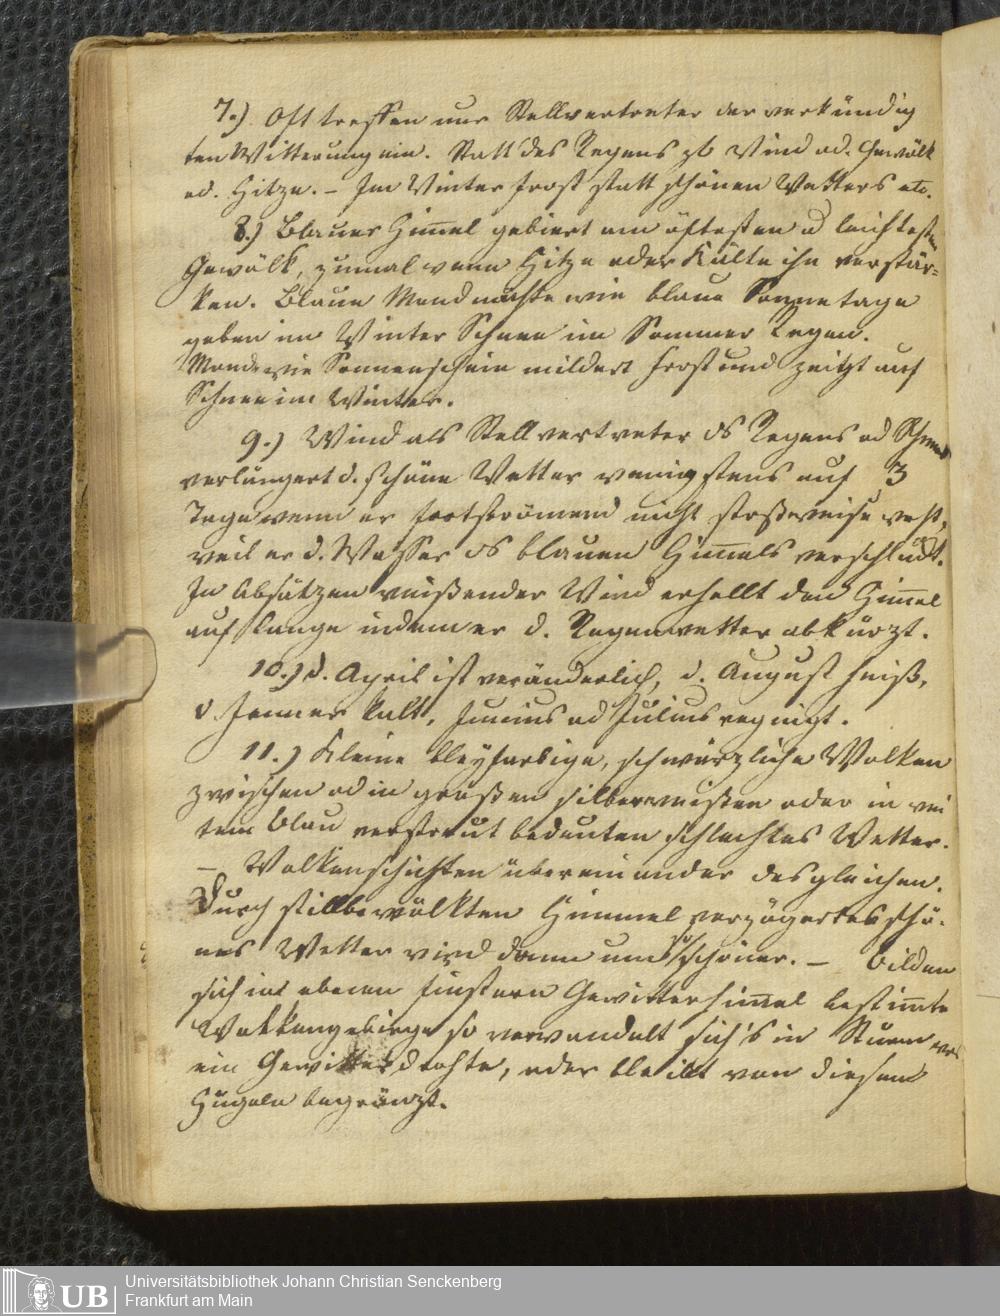 7.) Oft treffen nur Stellvertreter der verkündig
ten Witterung ein. Statt des Regens zb Wind od. Gewölk
od. Hitze. – Im Winter Frost statt schönen Wetters etc.
8.) Blauer Him̅el gebiert am öftesten u leichtesten
Gewölk, zumal wenn Hitze oder Kälte ihn verstär=
ken. Blaue Mondnächte wie blaue Sonnetage
geben im Winter Schnee im Sommer Regen.
Mond wie Sonnenschein mildert Frost und zeitzt auf
Schnee im Winter.
9.) Wind als Stellvertreter ds Regens od Schnees
verlängert d. schöne Wetter wenigstens auf 3
Tage wenn er fortströmend nicht stoßweise weht,
weil er d. Wasser ds blauen Him̅els verschluckt.
In Absätzen reißender Wind erhellt den Him̅el
auf lange indem er d. Regenwetter abkürzt.
10.) d. April ist veränderlich, d. August heiß,
d. Jenner kalt, Junius od Julius regnigt.
11.) Kleine bleyfarbige, schwärzliche Wolken
zwischen od in großen silberweißen oder in wei
tem Blau verstreut bedeuten schlechtes Wetter.
– Wolkenschichten übereinander desgleichen.
Durch stillbewölkten Himmel verzögertes schö-
nes Wetter wird dann um so schöner. – Bilden
sich im ebenen finstern Gewitterhim̅el bestim̅te
Wolkengebirge so verwandelt sich's in Sturm was
ein Gewitter drohte, oder bleibt von diesen
Hügeln begränzt.
Universitätsbibliothek Johann Christian Senckenberg
Frankfurt am Main
UB